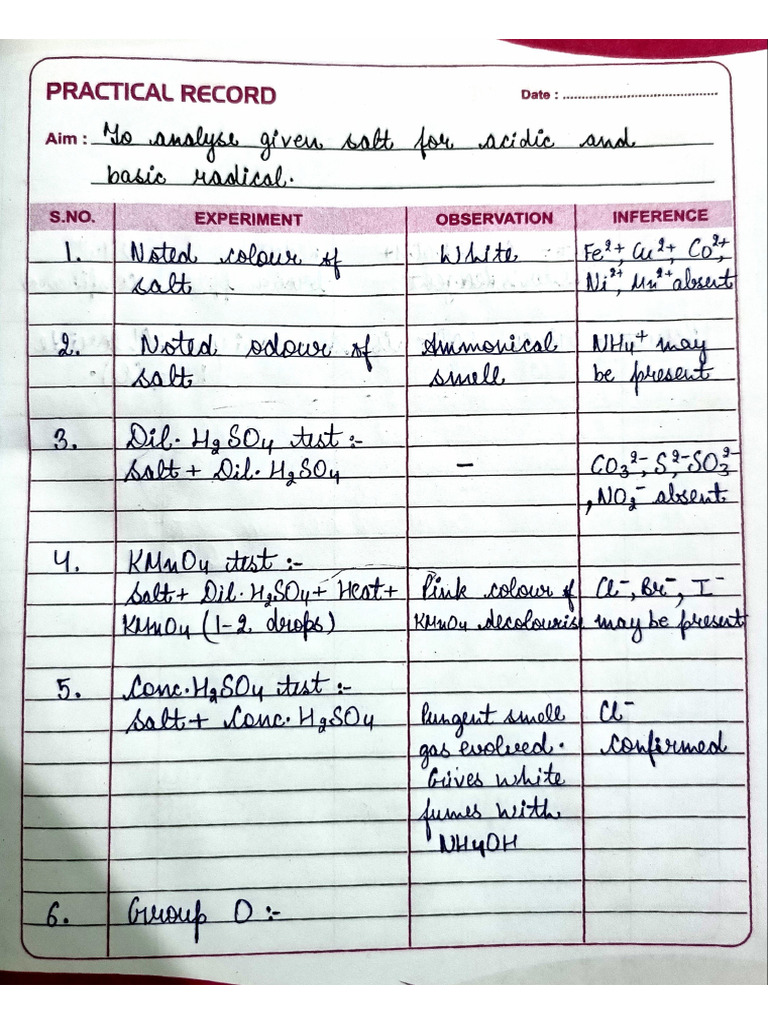 PRACTICAL RECORD
Date : ........................................
Aim : To analyse given salt for acidic and
basic radical.
S.NO. EXPERIMENT OBSERVATION INFERENCE
1. Noted colour of White Fe²⁺, Cu²⁺, Co²⁺,
salt Ni²⁺, Mn²⁺ absent
2. Noted odour of Ammonical NH₄⁺ may
salt smell be present
3. Dil. H₂SO₄ test :-
Salt + Dil. H₂SO₄ – CO₃²⁻, S²⁻ SO₃²⁻
, NO₂⁻ absent
4. KMnO₄ test :-
Salt + Dil. H₂SO₄ + Heat + Pink colour of Cl⁻, Br⁻, I⁻
KMnO₄ (1-2 drops) KMnO₄ decolouris may be present
5. Conc. H₂SO₄ test :-
Salt + Conc. H₂SO₄ Pungent smell Cl⁻
gas evolved. confirmed
Gives white
fumes with
NH₄OH
6. Group 0 :-